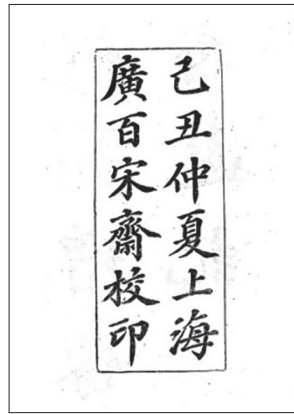 己丑仲夏上海
廣百宋齋校印